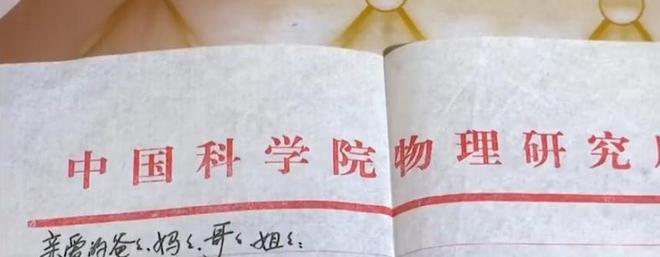 中国科学院物理研究
亲爱的爸々、妈々、哥々、姐々：